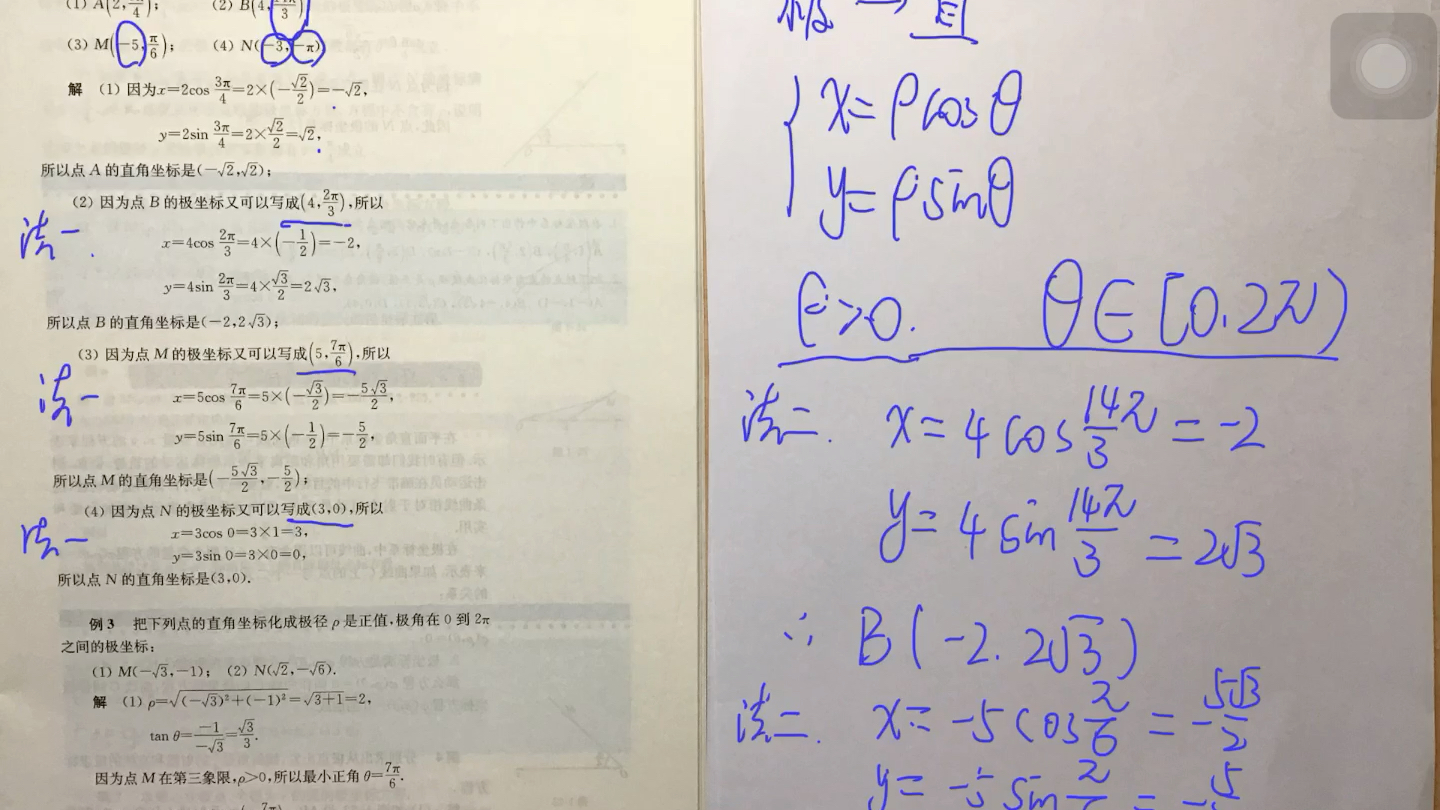 (1) A(2, 3π/4); (2) B(4,
(3) M(-5, π/6); (4) N(-3, -π)
解 (1) 因为x=2cos 3π/4=2×(-√2/2)=-√2,
y=2sin 3π/4=2×√2/2=√2,
所以点 A 的直角坐标是(-√2,√2);
(2) 因为点 B 的极坐标又可以写成(4, 2π/3),所以
法一.
x=4cos 2π/3=4×(-1/2)=-2,
y=4sin 2π/3=4×√3/2=2√3,
所以点 B 的直角坐标是(-2,2√3);
(3) 因为点 M 的极坐标又可以写成(5, 7π/6),所以
法一
x=5cos 7π/6=5×(-√3/2)=-5√3/2,
y=5sin 7π/6=5×(-1/2)=-5/2,
所以点 M 的直角坐标是(-5√3/2, -5/2);
(4) 因为点 N 的极坐标又可以写成(3,0),所以
法一
x=3cos 0=3×1=3,
y=3sin 0=3×0=0,
所以点 N 的直角坐标是(3,0).
例 3 把下列点的直角坐标化成极径 ρ 是正值,极角在 0 到 2π
之间的极坐标:
(1) M(-√3,-1); (2) N(√2,-√6).
解 (1) ρ=√((-√3)²+(-1)²)=√(3+1)=2,
tan θ=-1/-√3=√3/3.
因为点 M 在第三象限,ρ>0,所以最小正角 θ=7π/6.
极 → 直
x=ρcosθ
y=ρsinθ
ρ>0. θ∈[0.2π)
法二. x=4cos 14π/3=-2
y=4sin 14π/3=2√3
∴ B(-2.2√3)
法二. x=-5cos π/6=-5√3/2
y=-5sin π